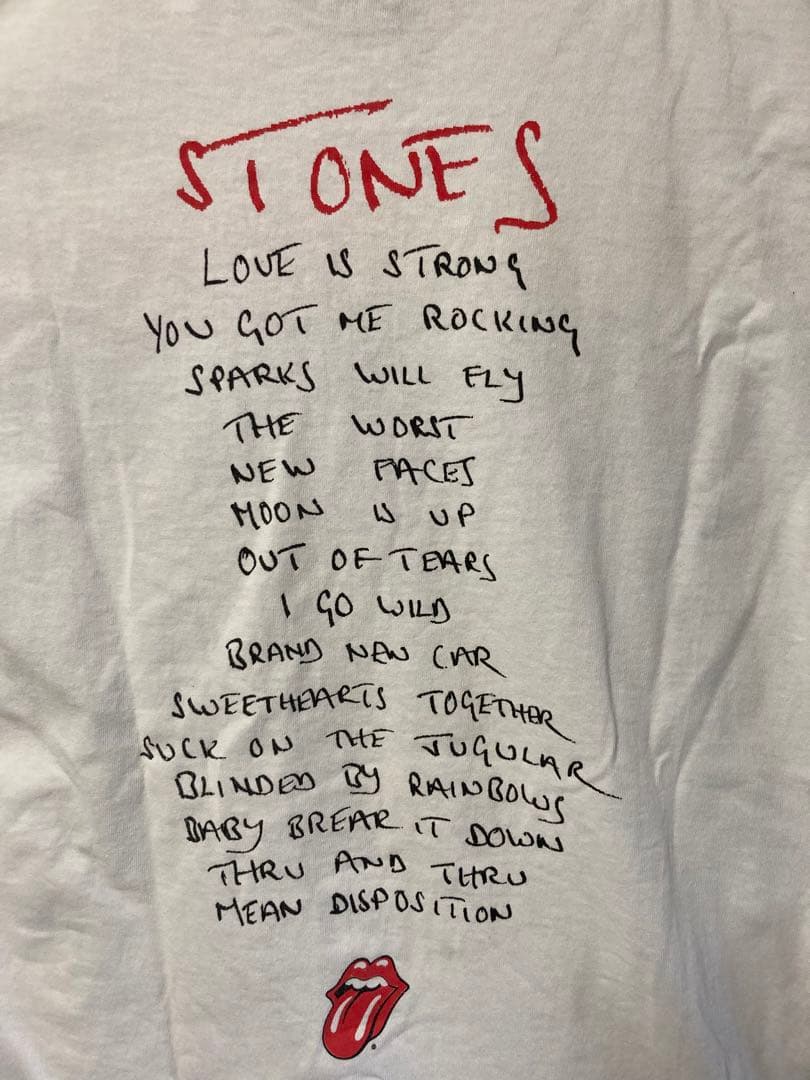 STONES
LOVE IS STRONG
YOU GOT ME ROCKING
SPARKS WILL FLY
THE WORST
NEW FACES
MOON IS UP
OUT OF TEARS
I GO WILD
BRAND NEW CAR
SWEETHEARTS TOGETHER
SUCK ON THE JUGULAR
BLINDED BY RAINBOWS
BABY BREAK IT DOWN
THRU AND THRU
MEAN DISPOSITION